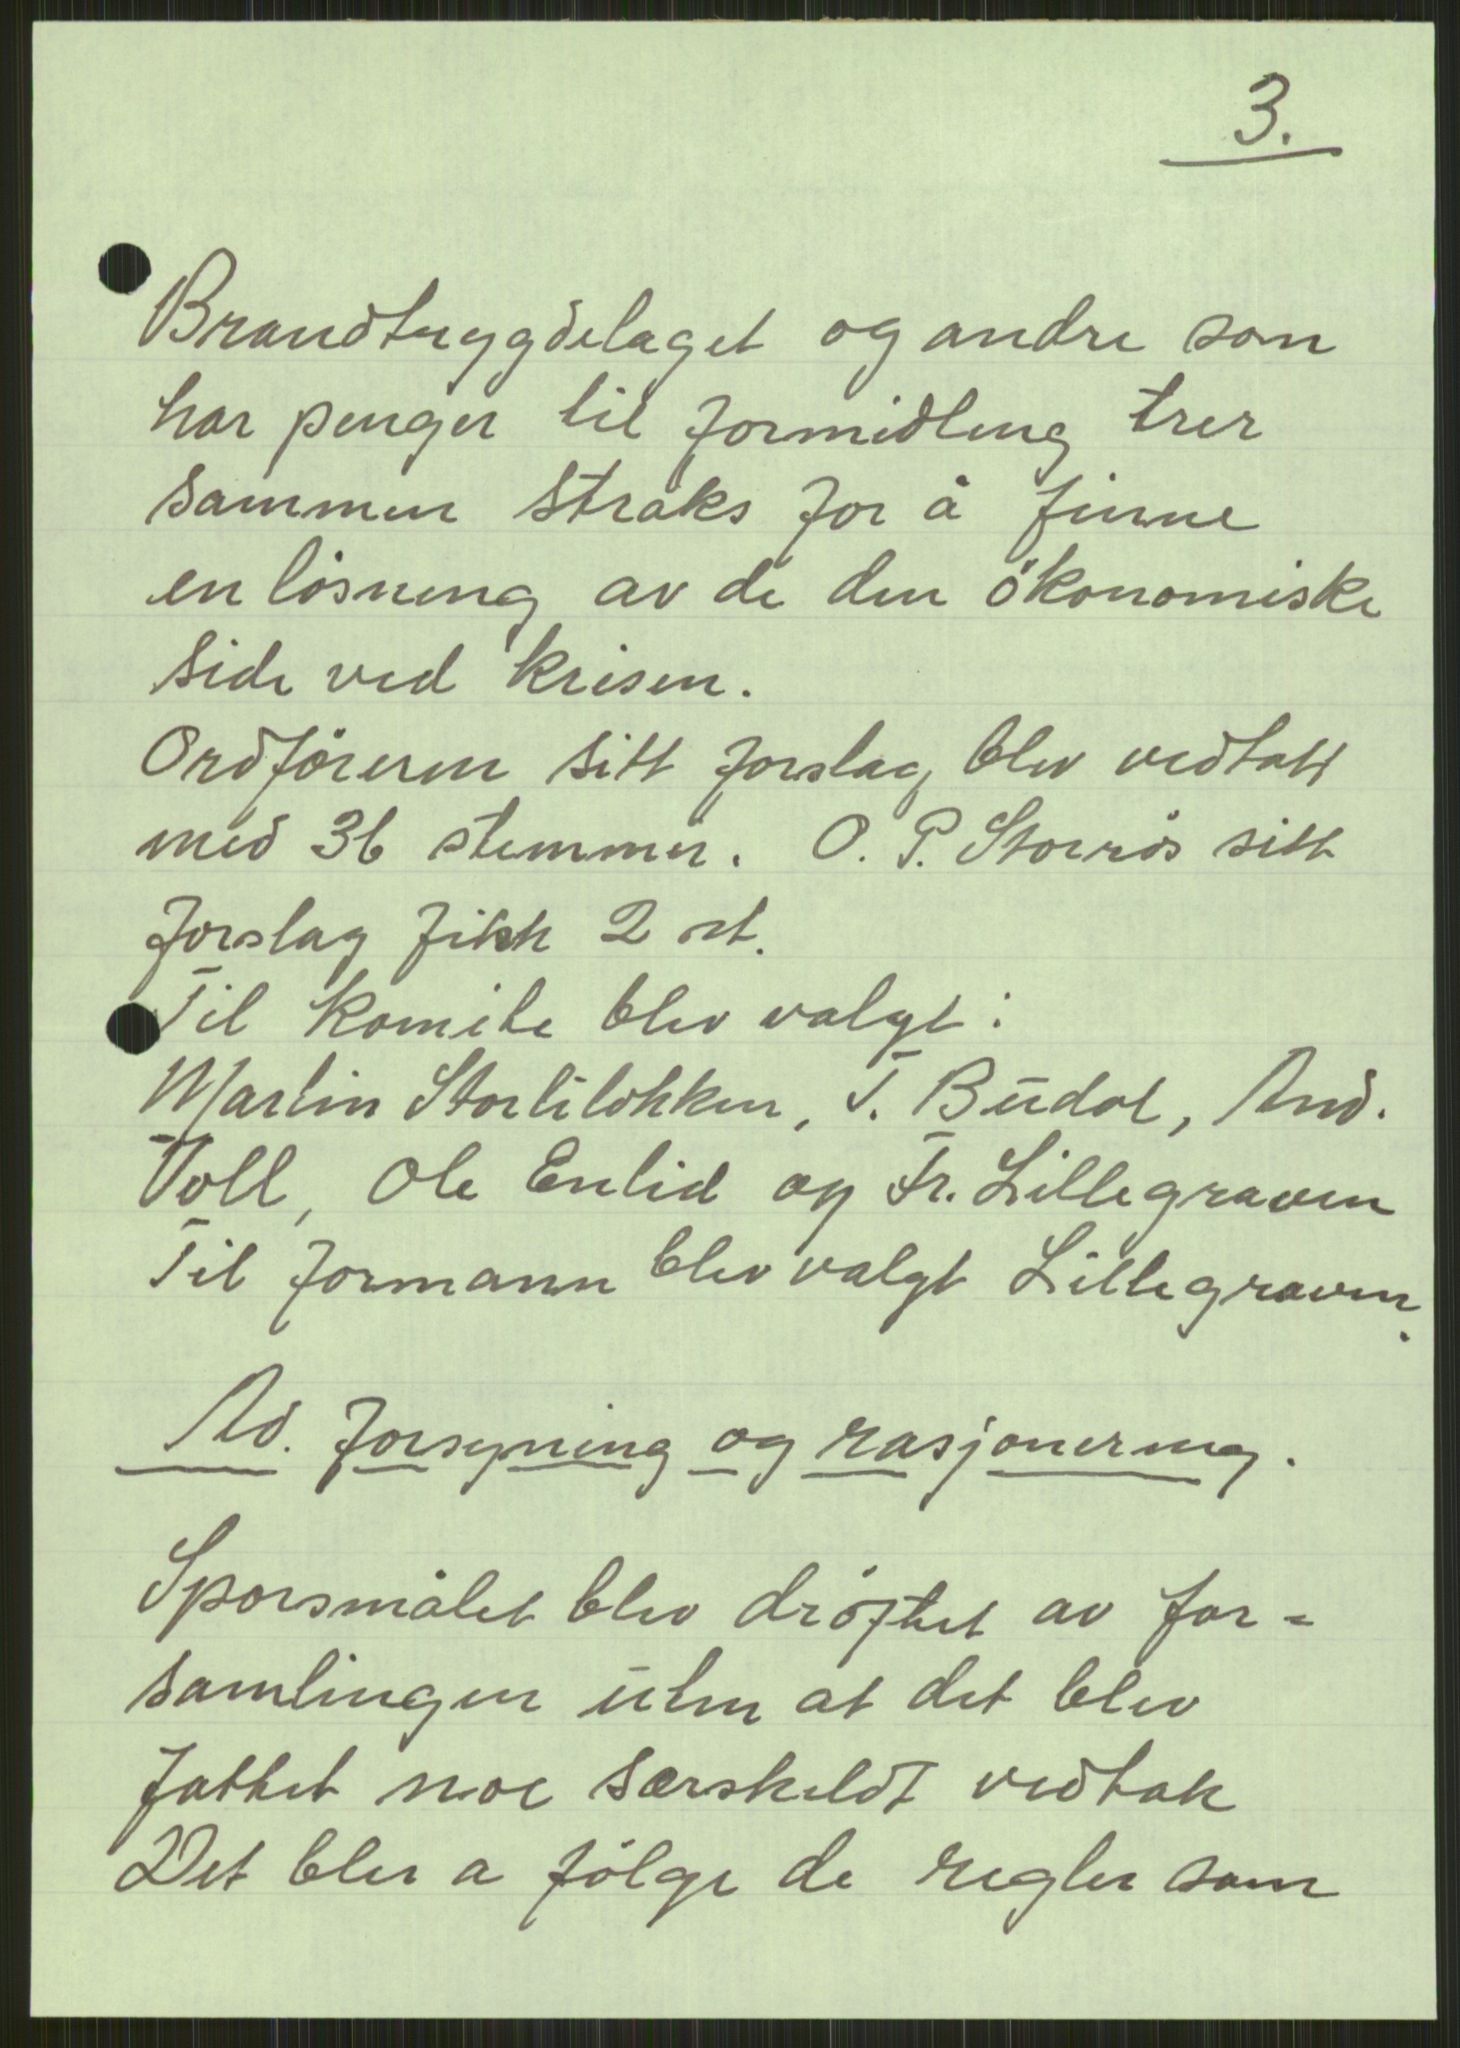 3.
Brandtrygdelaget og andre som
har penger til formidling trer
sammen straks for å finne
en lösning av de den ökonomiske
side ved krisen.
Ordföreren sitt forslag blev vedtatt
med 36 stemmer. O. P. Storrös sitt
forslag fikk 2 st.
Til komite blev valgt:
Martin Storlilökken, T. Budal, And.
Voll, Ole Enlid og Fr. Lillegraven
Til formann blev valgt Lillegraven.
Ad. forsyning og rasjonering.
Sporsmålet blev dröftet av for-
samlingen uten at det blev
fattet noe særskildt vedtak
Det blev a fölge de regler som